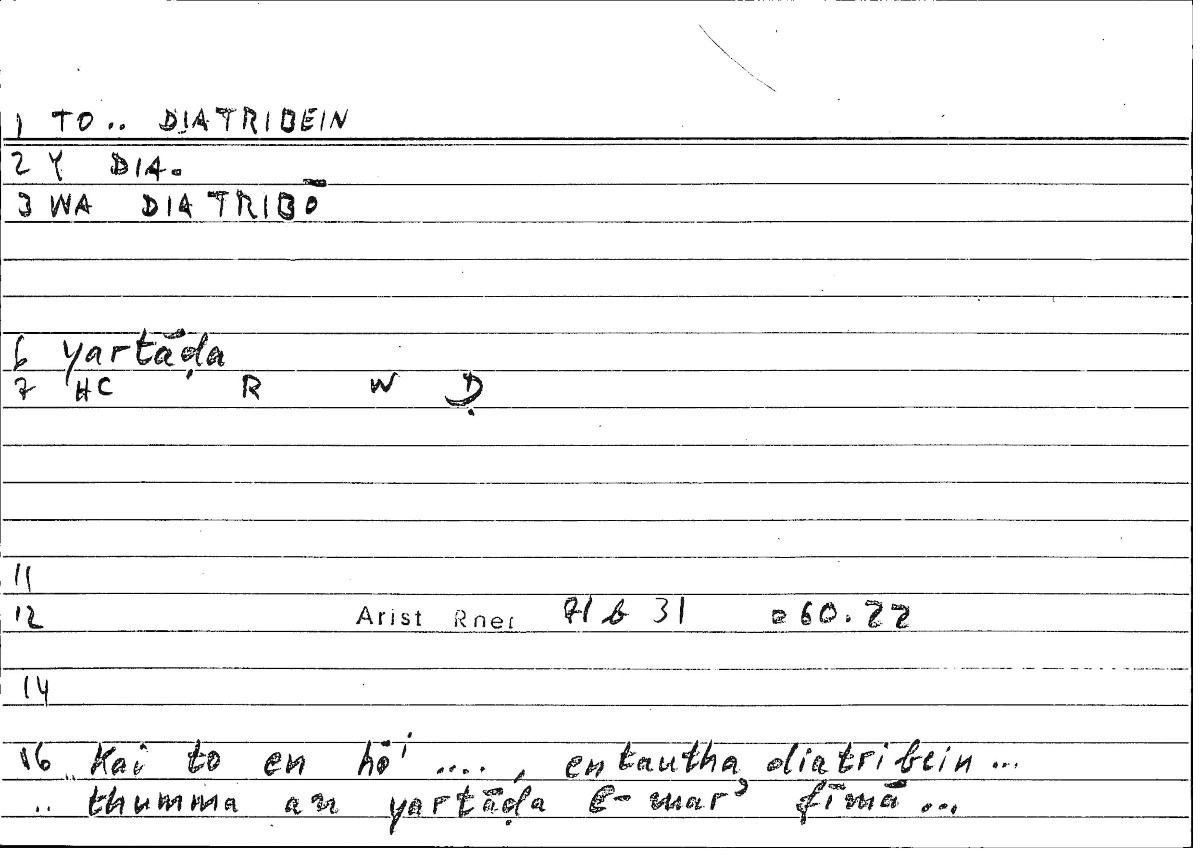 1 TO.. DIATRIBEIN
2 Y DIA.
3 WA DIATRIBŌ
6 yartāḍa
7 HC R W Ḍ
11
12 Arist Rhet 71 b 31 = 60.22
14
16 Kai to en hōi ...., entautha diatribein ...
.. thumma an yartāḍa l-marʾ fīmā ...